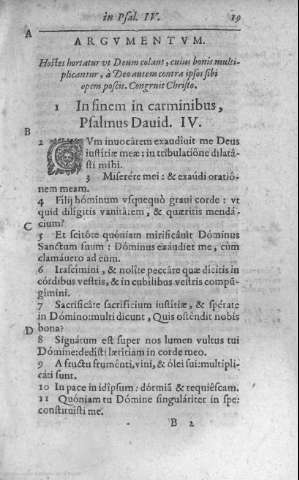 in Psal. IV. 19
A
ARGVMENTVM.
Hostes hortatur vt Deum colant, cuius bonis multi-
plicantur, à Deo autem contra ipsos sibi
opem poscit. Congruit Christo.
1 In finem in carminibus,
Psalmus Dauid. IV.
B
2 CVm inuocárem exaudiuit me Deus
iustítiæ meæ: in tribulatióne dilatá-
sti mihi.
3 Miserére mei: & exáudi oratió-
nem meam.
4 Filij hóminum vsquequò graui corde: vt
quid dilígitis vanitátem, & quæritis mendá-
C cium?
5 Et scitóte quóniam mirificáuit Dóminus
Sanctum suum: Dóminus exáudiet me, cùm
clamáuero ad eum.
6 Irascímini, & nolíte peccáre quæ dícitis in
córdibus vestris, & in cubílibus vestris compú-
gimini.
7 Sacrificáte sacrifícium iustítiæ, & speráte
in Dómino: multi dicunt, Quis osténdit nobis
D bona?
8 Signátum est super nos lumen vultus tui
Dómine: dedísti lætítiam in corde meo.
9 A fructu fruménti, vini, & ólei sui: multipli-
cáti sunt.
10 In pace in idípsum: dórmiã & requiéscam.
11 Quóniam tu Dómine singuláriter in spe:
constituísti me.
B 2